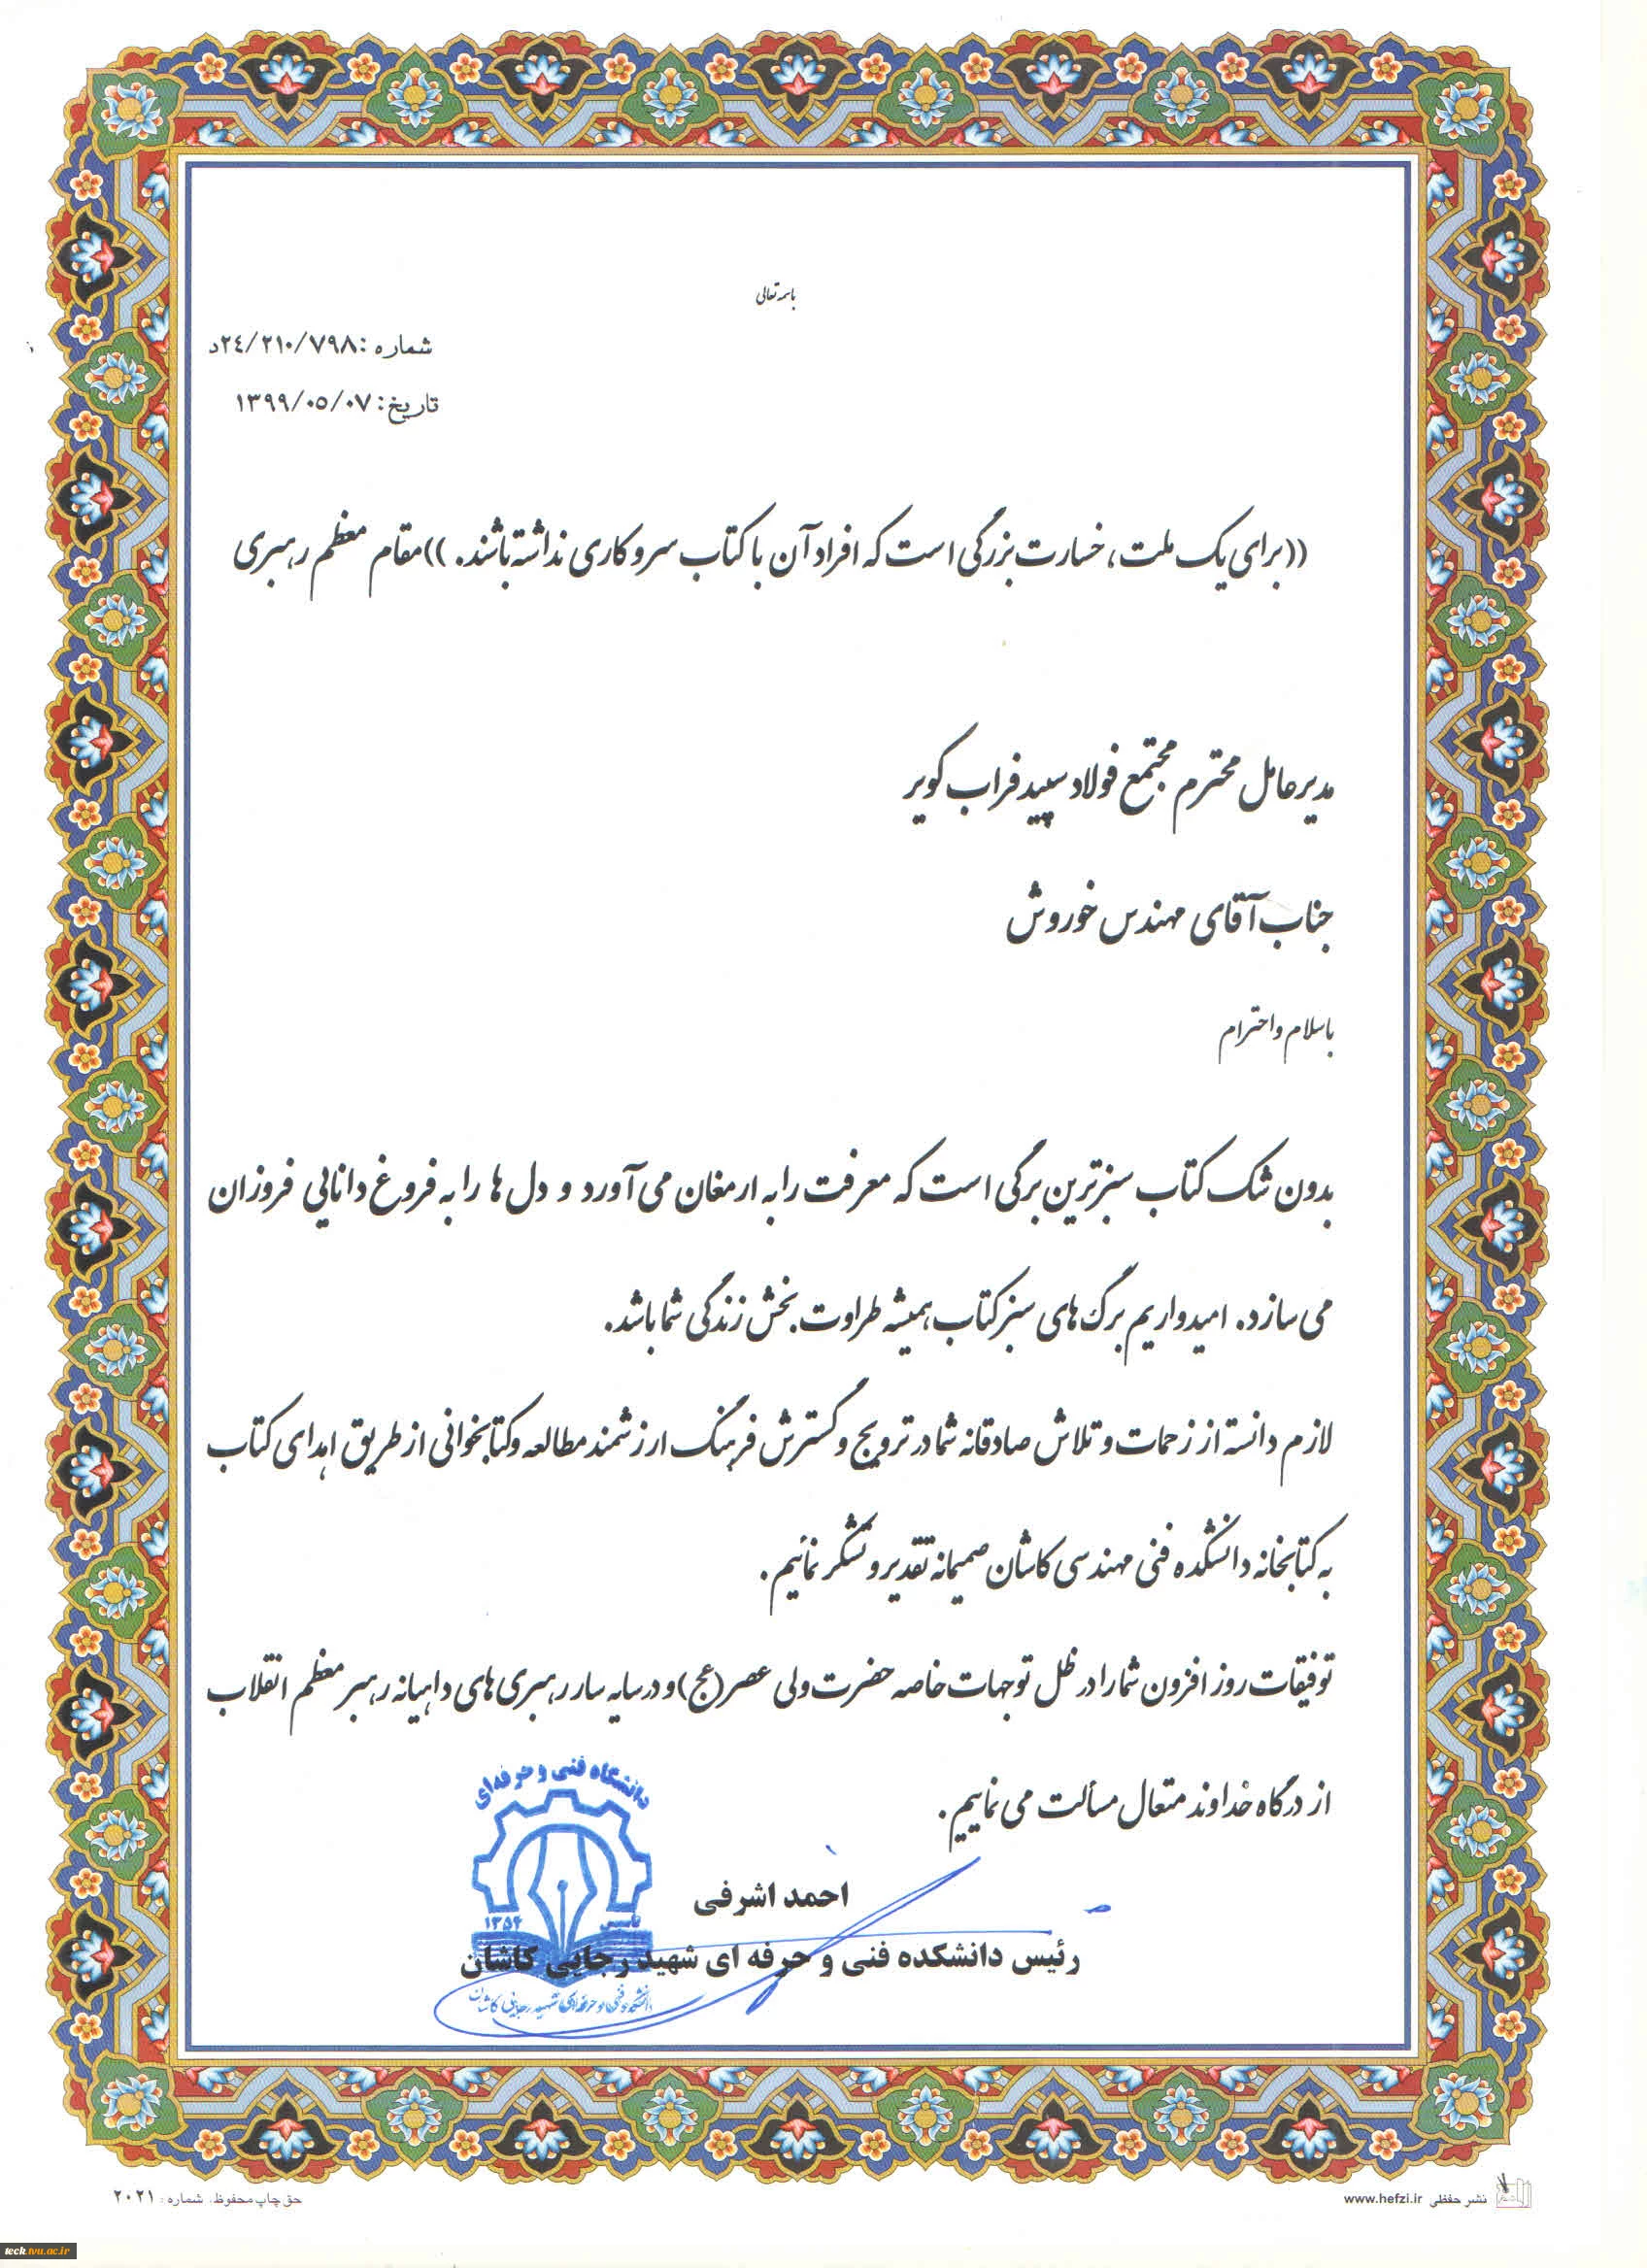 باسمه تعالی
شماره :۲۴/۲۱۰/۷۹۸د
تاریخ: ۱۳۹۹/۰۵/۰۷
((برای یک ملت، خسارت بزرگی است که افراد آن با کتاب سروکاری نداشته باشند.))مقام معظم رهبری
مدیرعامل محترم مجتمع فولاد سپید فراب کویر
جناب آقای مهندس خوروش
باسلام واحترام
بدون شک کتاب سبزترین برگی است که معرفت را به ارمغان می آورد و دل ها را به فروغ دانایی فروزان
می سازد. امیدواریم برگ های سبز کتاب همیشه طراوت بخش زندگی شما باشد.
لازم دانسته از زحمات و تلاش صادقانه شما در ترویج و گسترش فرهنگ ارزشمند مطالعه و کتابخوانی از طریق اهدای کتاب
به کتابخانه دانشکده فنی مهندسی کاشان صمیمانه تقدیر و تشکر نمائیم.
توفیقات روز افزون شما را در ظل توجهات خاصه حضرت ولی عصر(عج)و در سایه سار رهبری های داهیانه رهبر معظم انقلاب
از درگاه خداوند متعال مسألت می نماییم.
دانشگاه فنی و حرفه‌ای
تاسیس ۱۳۵۴
احمد اشرفی
رئیس دانشکده فنی و حرفه ای شهید رجایی کاشان
دانشکده فنی و حرفه ای شهید رجایی کاشان
نشر حفظی www.hefzi.ir
حق چاپ محفوظ. شماره : ۲۰۲۱
teck.tvu.ac.ir